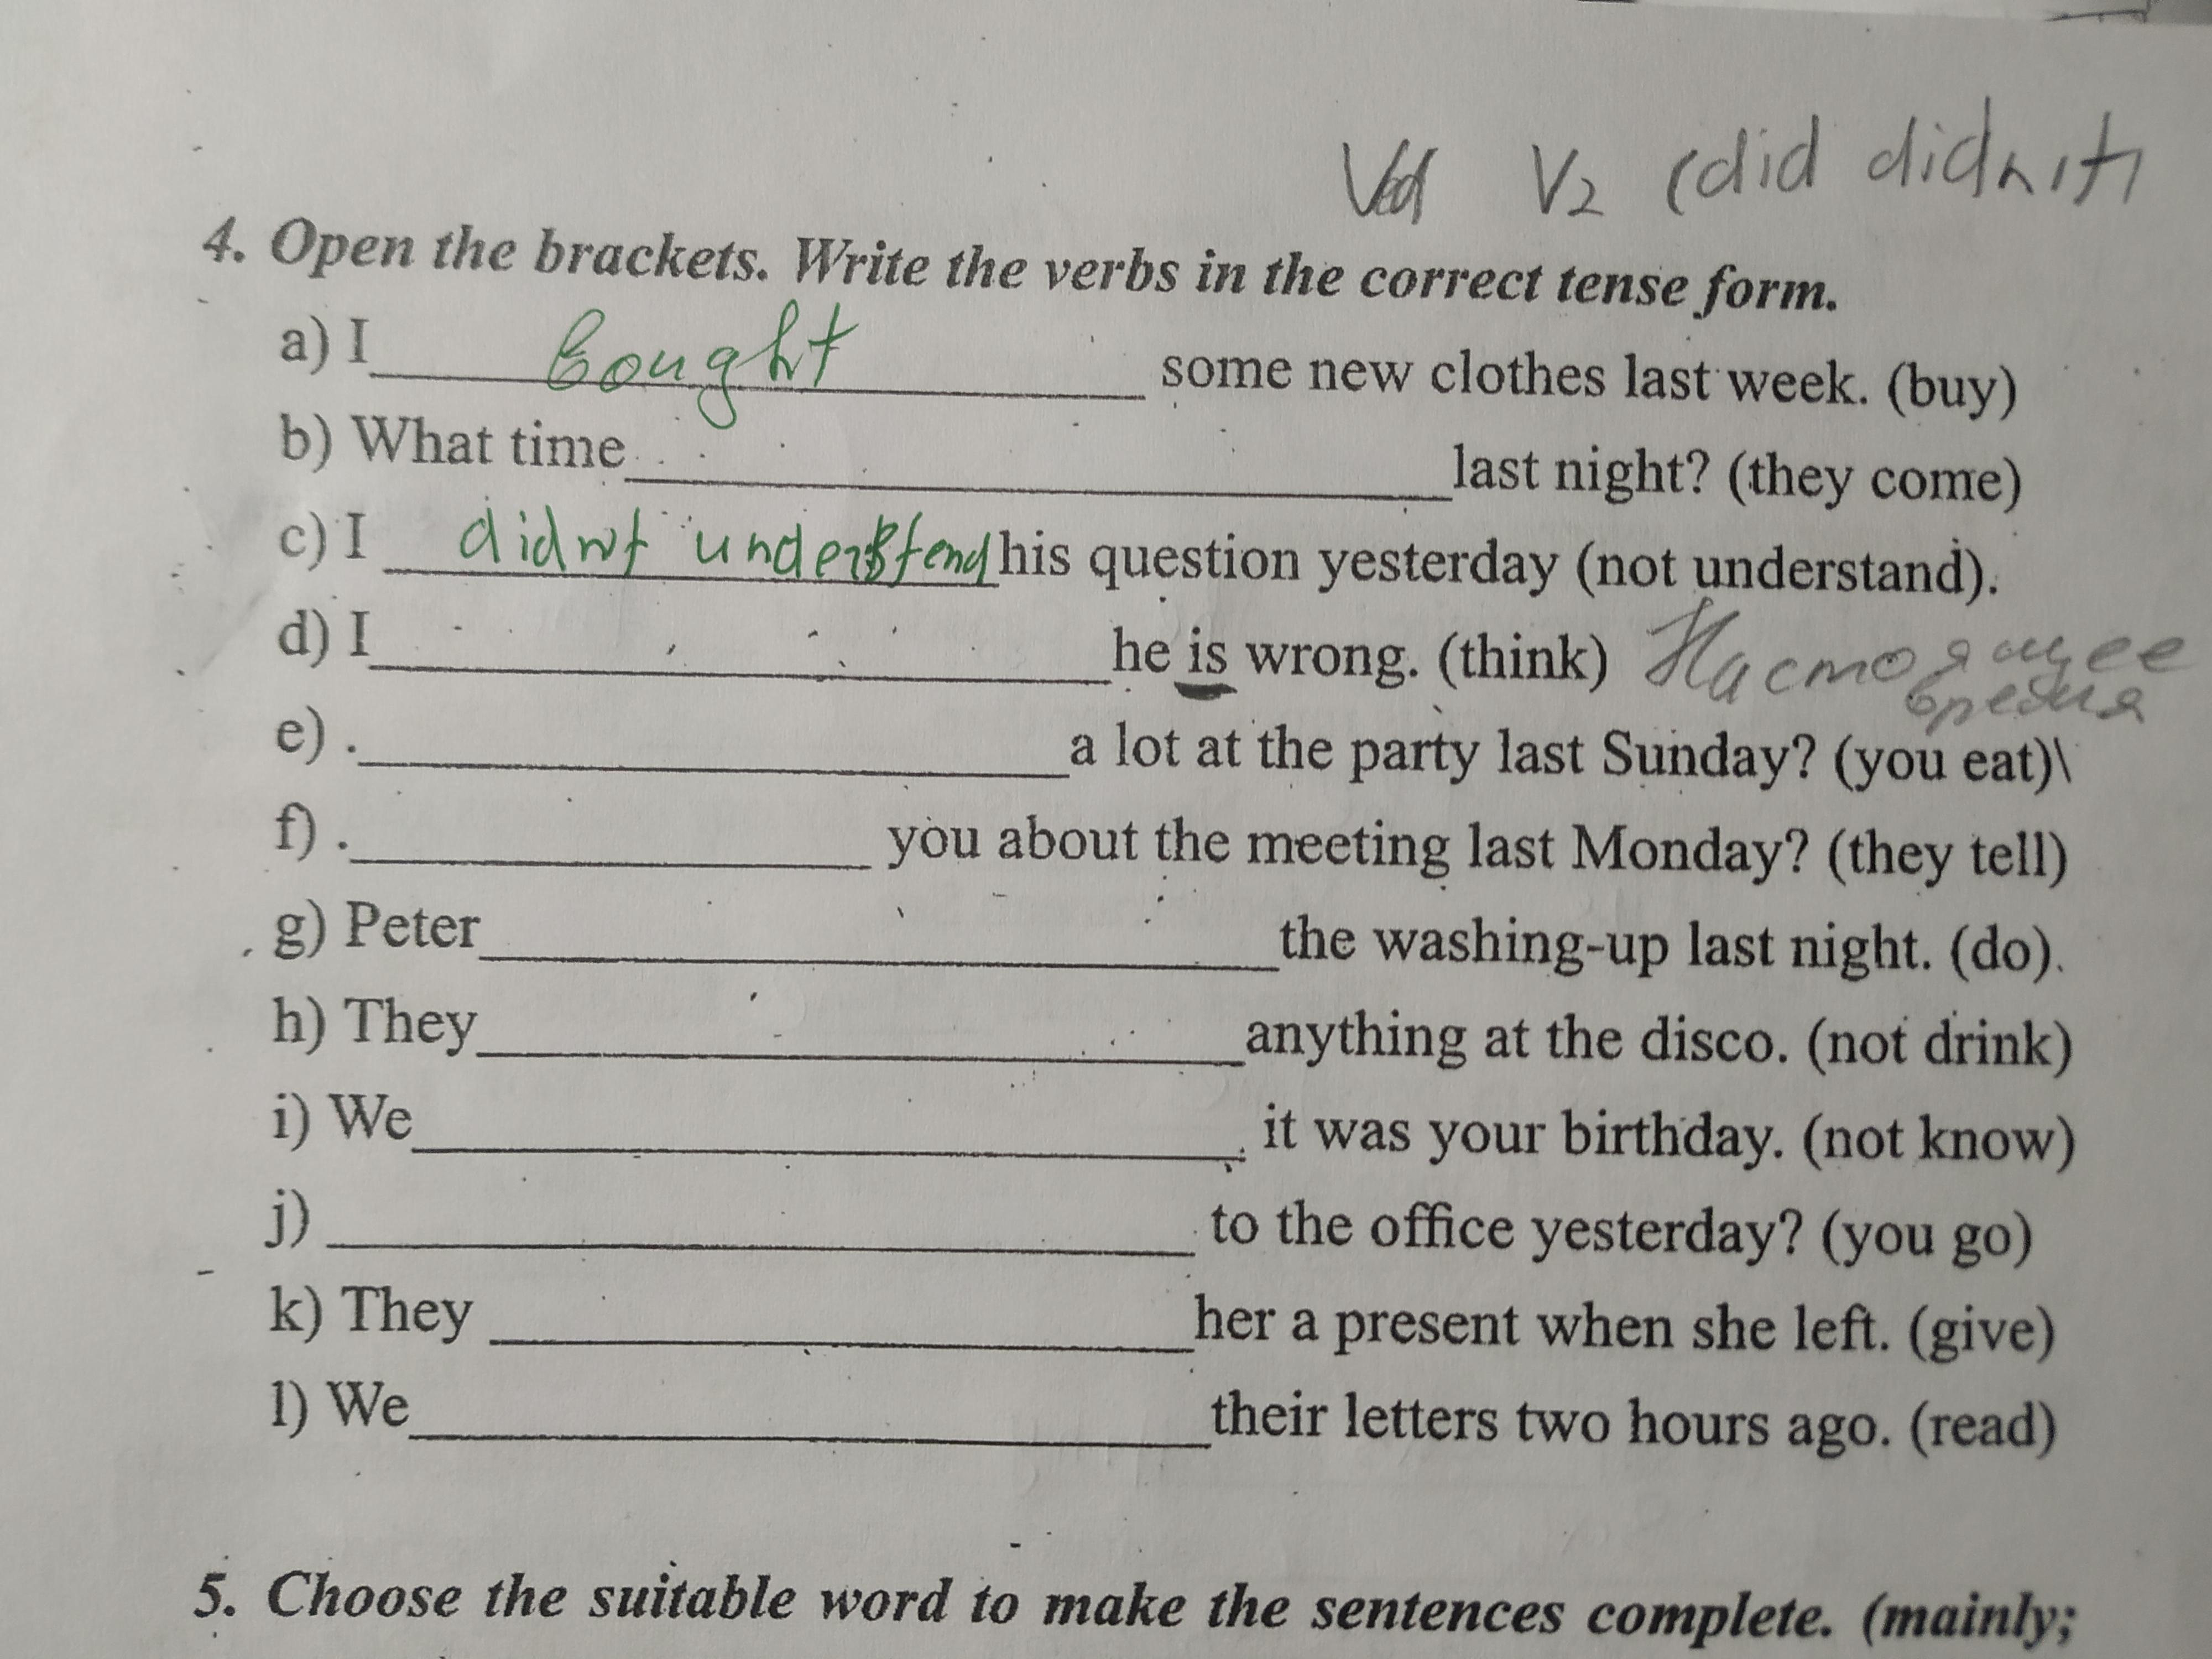 Ved V2 (did didn't)
4. Open the brackets. Write the verbs in the correct tense form.
a) I bought some new clothes last week. (buy)
b) What time ______ last night? (they come)
c) I didn't understend his question yesterday (not understand).
d) I ______ he is wrong. (think) Настоящее время
e) . ______ a lot at the party last Sunday? (you eat)\
f) . ______ you about the meeting last Monday? (they tell)
g) Peter ______ the washing-up last night. (do).
h) They ______ anything at the disco. (not drink)
i) We ______ it was your birthday. (not know)
j) ______ to the office yesterday? (you go)
k) They ______ her a present when she left. (give)
l) We ______ their letters two hours ago. (read)
5. Choose the suitable word to make the sentences complete. (mainly;